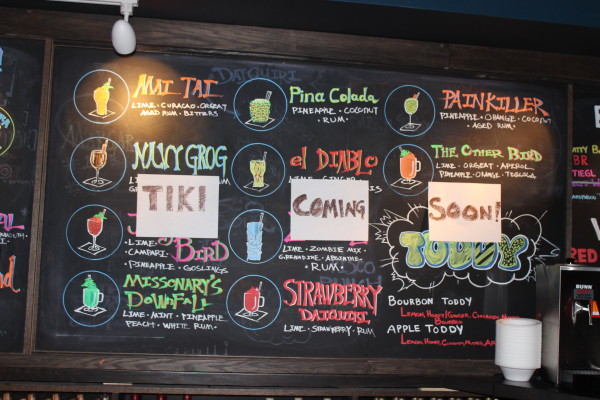 MAI TAI
LIME · CURACAO · ORGEAT
AGED RUM · BITTERS
Pina Colada
PINEAPPLE · COCONUT
· RUM ·
PAINKILLER
PINEAPPLE · ORANGE · COCONUT
· AGED RUM ·
NAVY GROG
el DIABLO
THE OTHER BIRD
LIME · ORGEAT · APEROL
PINEAPPLE · ORANGE · TEQUILA
TIKI
COMING
SOON!
BIRD
LIME ·
CAMPARI ·
PINEAPPLE · GOSLINGS
LIME · ZOMBIE MIX ·
GRENADINE · ABSINTHE ·
RUM ·
TODDY
MISSIONARY'S
DOWNFALL
LIME · MINT · PINEAPPLE
PEACH · WHITE RUM ·
STRAWBERRY
DAIQUIRI
LIME · STRAWBERRY · RUM
BOURBON TODDY
LEMON, HONEY/GINGER, CINNAMON
BOURBON
APPLE TODDY
LEMON, HONEY, CINNAMON
BUNN